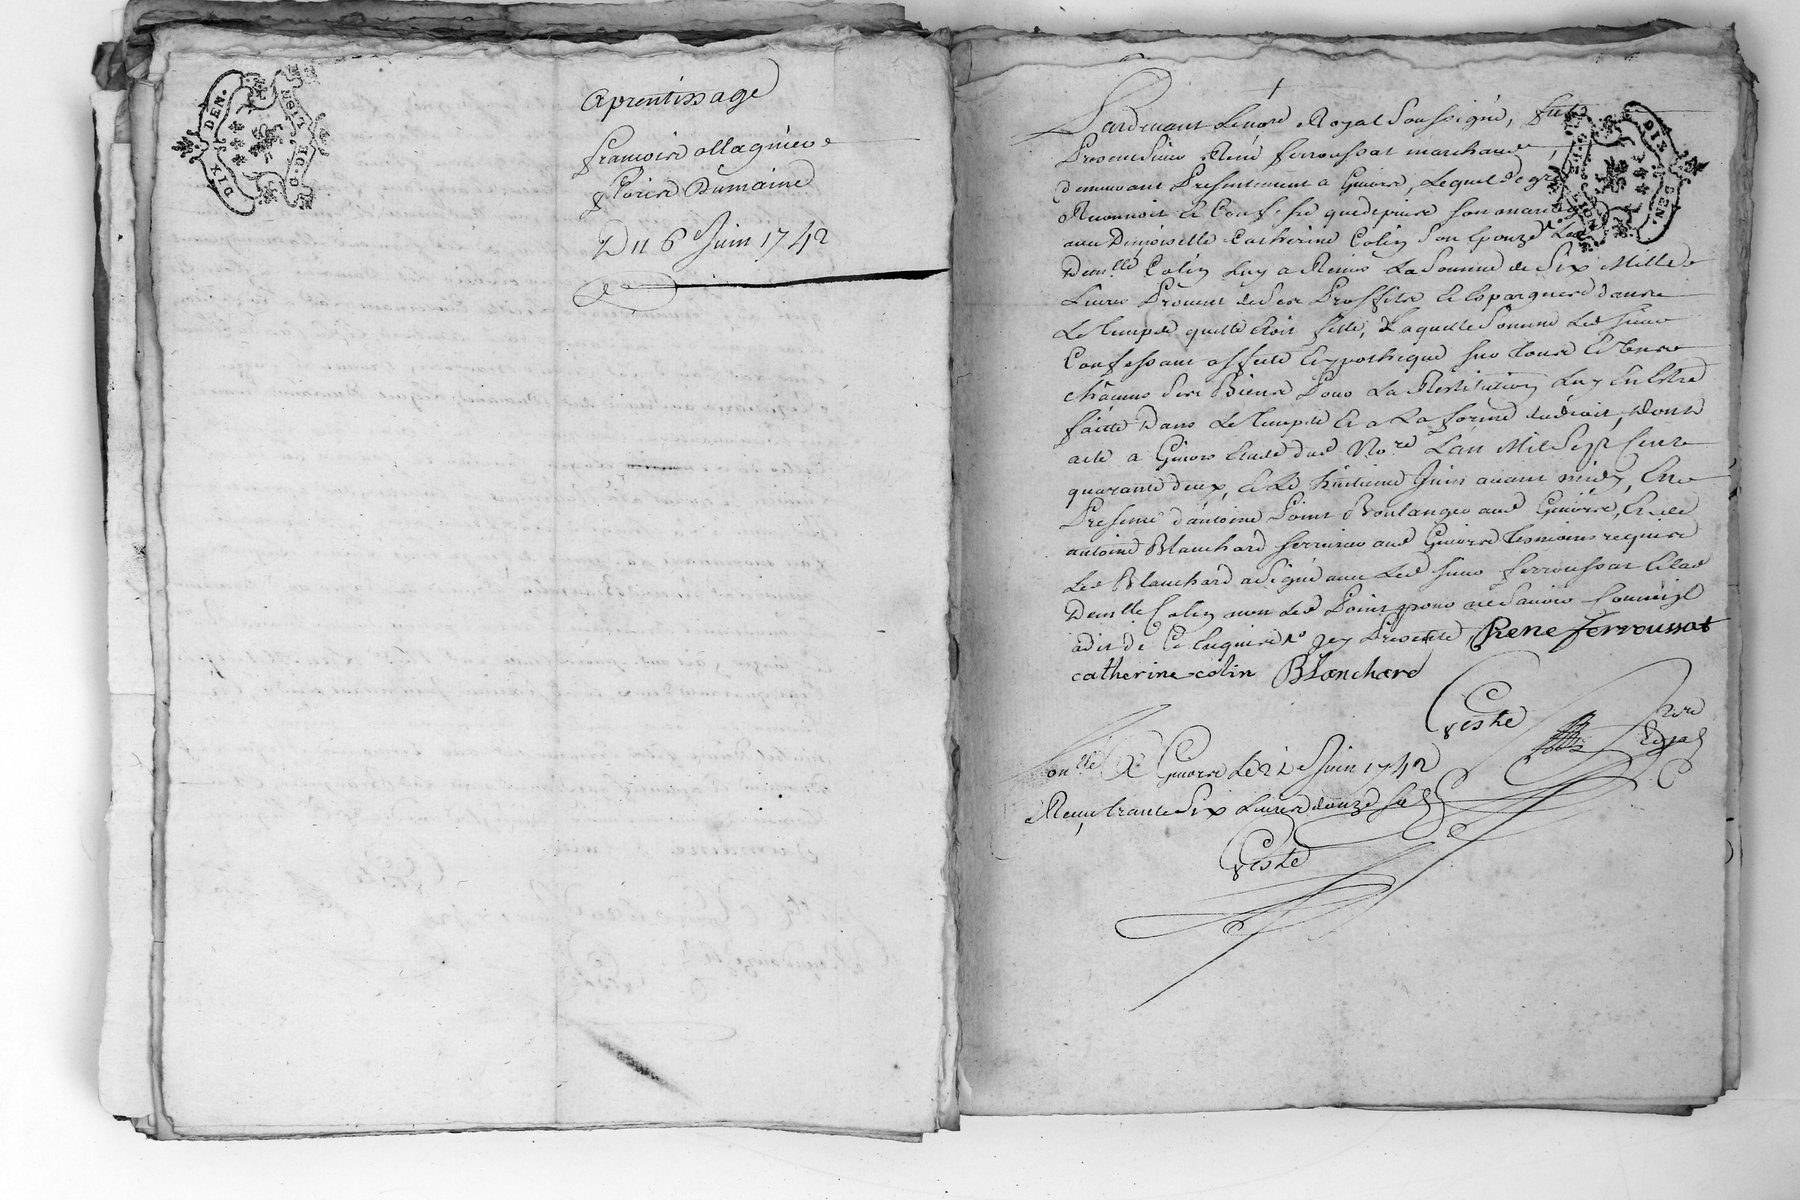 DIX DEN.
G. DE LION
Aprentissage
francoise ollagnier &
florise Dumaine
Du 6e Juin 1742
Pardevant Le nore Royal Soussigné, fut
Present Sieur René ferroussat marchand,
demeurant Presentement a Givors, Lequel de gré
Reconnoit et Confesse que depuis son mariage
avec Demoiselle Catherine Colin Son Epouze Lad
Demlle Colin Luy a Remis La Somme de Six Mille
Livres Provenu de Ses Proffits et Epargnes dans
Le temps quelle étoit fille, Laquelle Somme Led Sieur
Confessant affecte et ypotheque sur tous et uns
châcuns Ses Biens Pour La Restitution Luy En Estre
faitte Dans Le temps et a La forme du droit, dont
acte a Givors Etude dud Nore Lan Mil Sept Cents
quarante deux, et Le huitieme Juin avant midy, En
Presence d'antoine Point Boulanger aud Givors, et de
antoine Blanchard serrurier aud Givors temoins requis
Led Blanchard a Signé avec Led Sieur ferroussat et lad
Demlle Colin non Led Point pour ne Savoir comme il
a dit de ce Enquis et requis Presents, Rene ferroussat
catherine colin Blanchard
Veste Nore Royal
Conlle A Givors Le 21e Juin 1742
Reçu trante Six Livres douze sols
Veste
DIX DEN.
G. DE LION